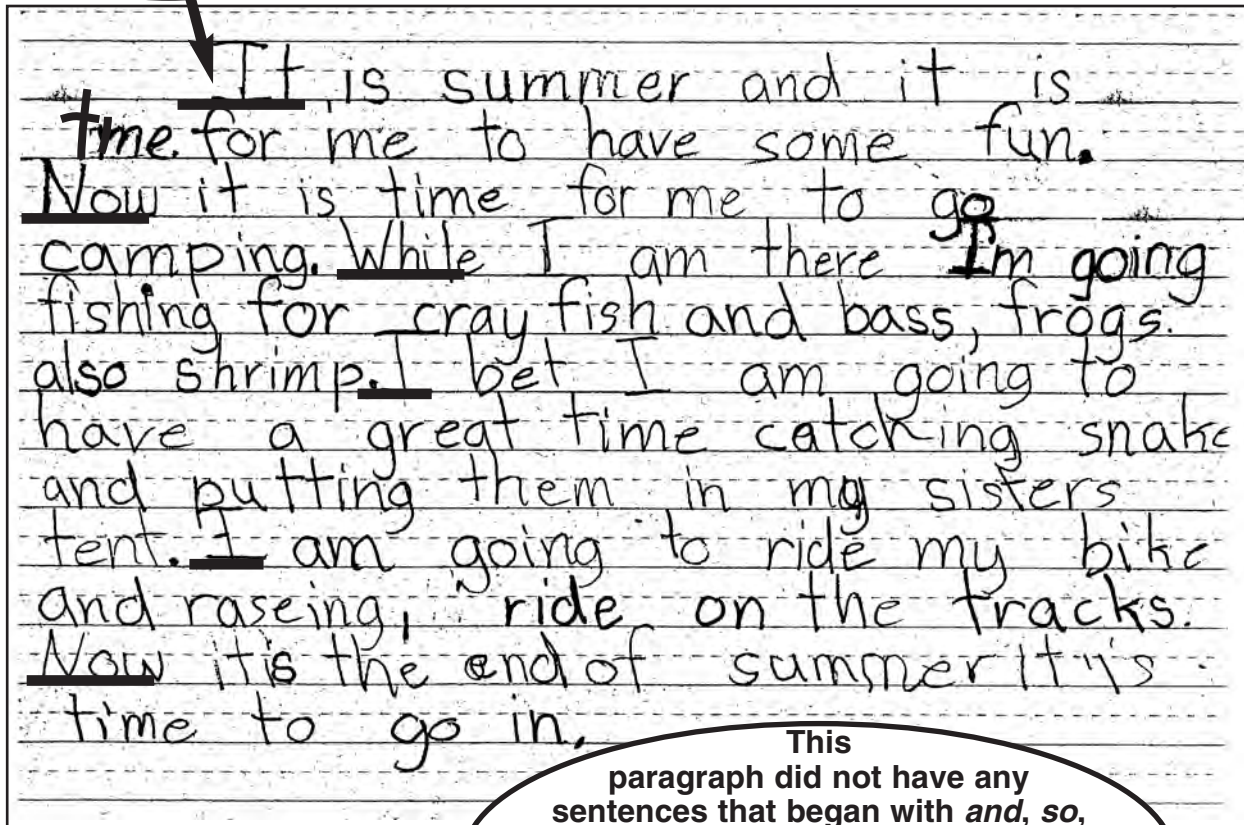 It is summer and it is
time. for me to have some fun.
Now it is time for me to go
camping. While I am there Im going
fishing for cray fish and bass, frogs.
also shrimp. I bet I am going to
have a great time catching snake
and putting them in my sisters
tent. I am going to ride my bike
and raseing, ride on the tracks.
Now it is the end of summer it is
time to go in.
This
paragraph did not have any
sentences that began with and, so,